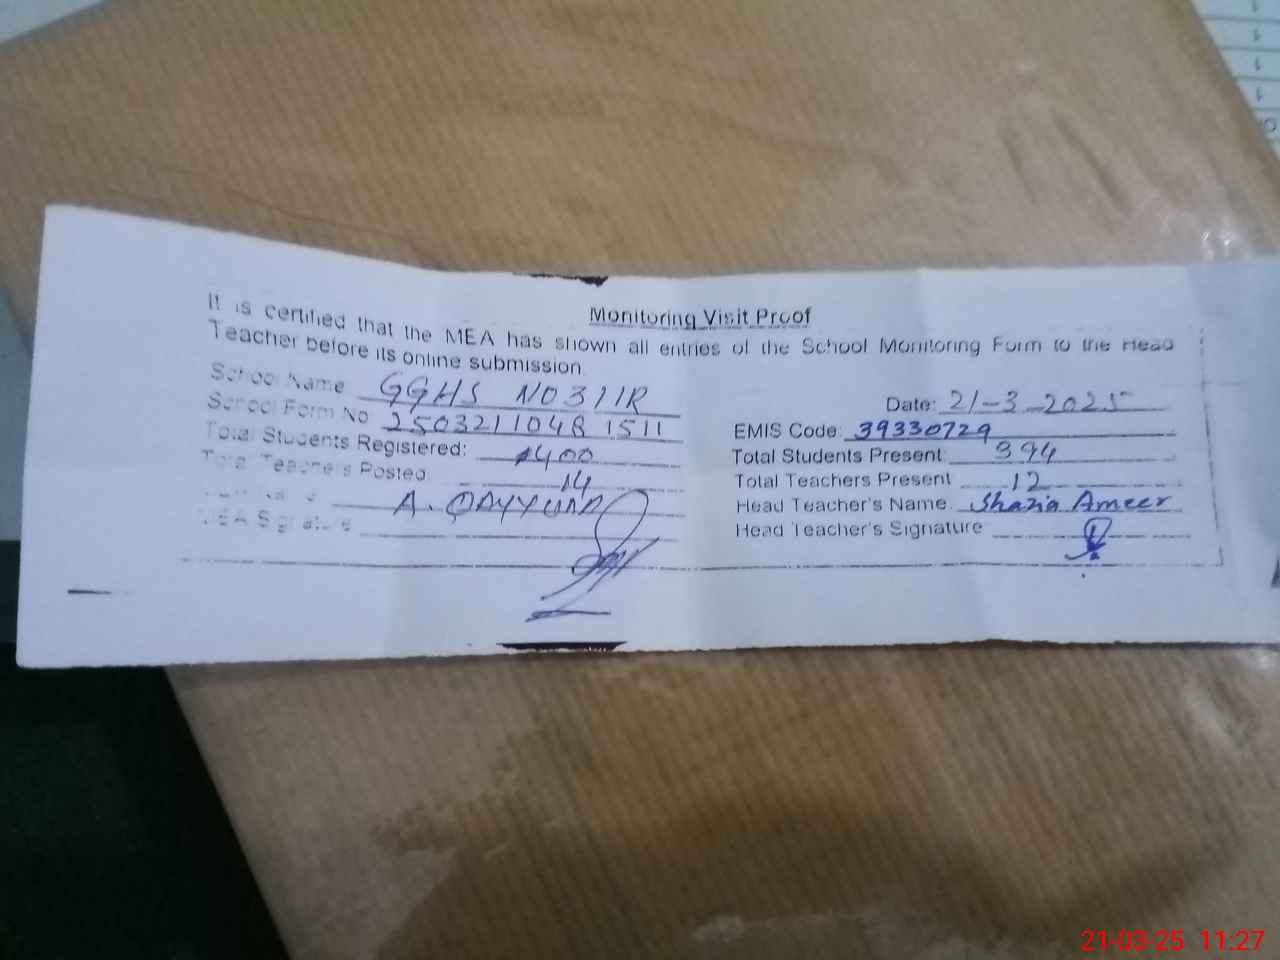 Monitoring Visit Proof
It is certified that the MEA has shown all entries of the School Monitoring Form to the Head
Teacher before its online submission.
School Name GGHS NO311R
Date: 21-3-2025
School Form No 25032110481511
EMIS Code: 39330729
Total Students Registered: 400
Total Students Present: 394
Total Teachers Posted 14
Total Teachers Present 12
A. QAYYUM
Head Teacher's Name. Shazia Ameer
MEA Signature
Head Teacher's Signature
21-03-25 11:27